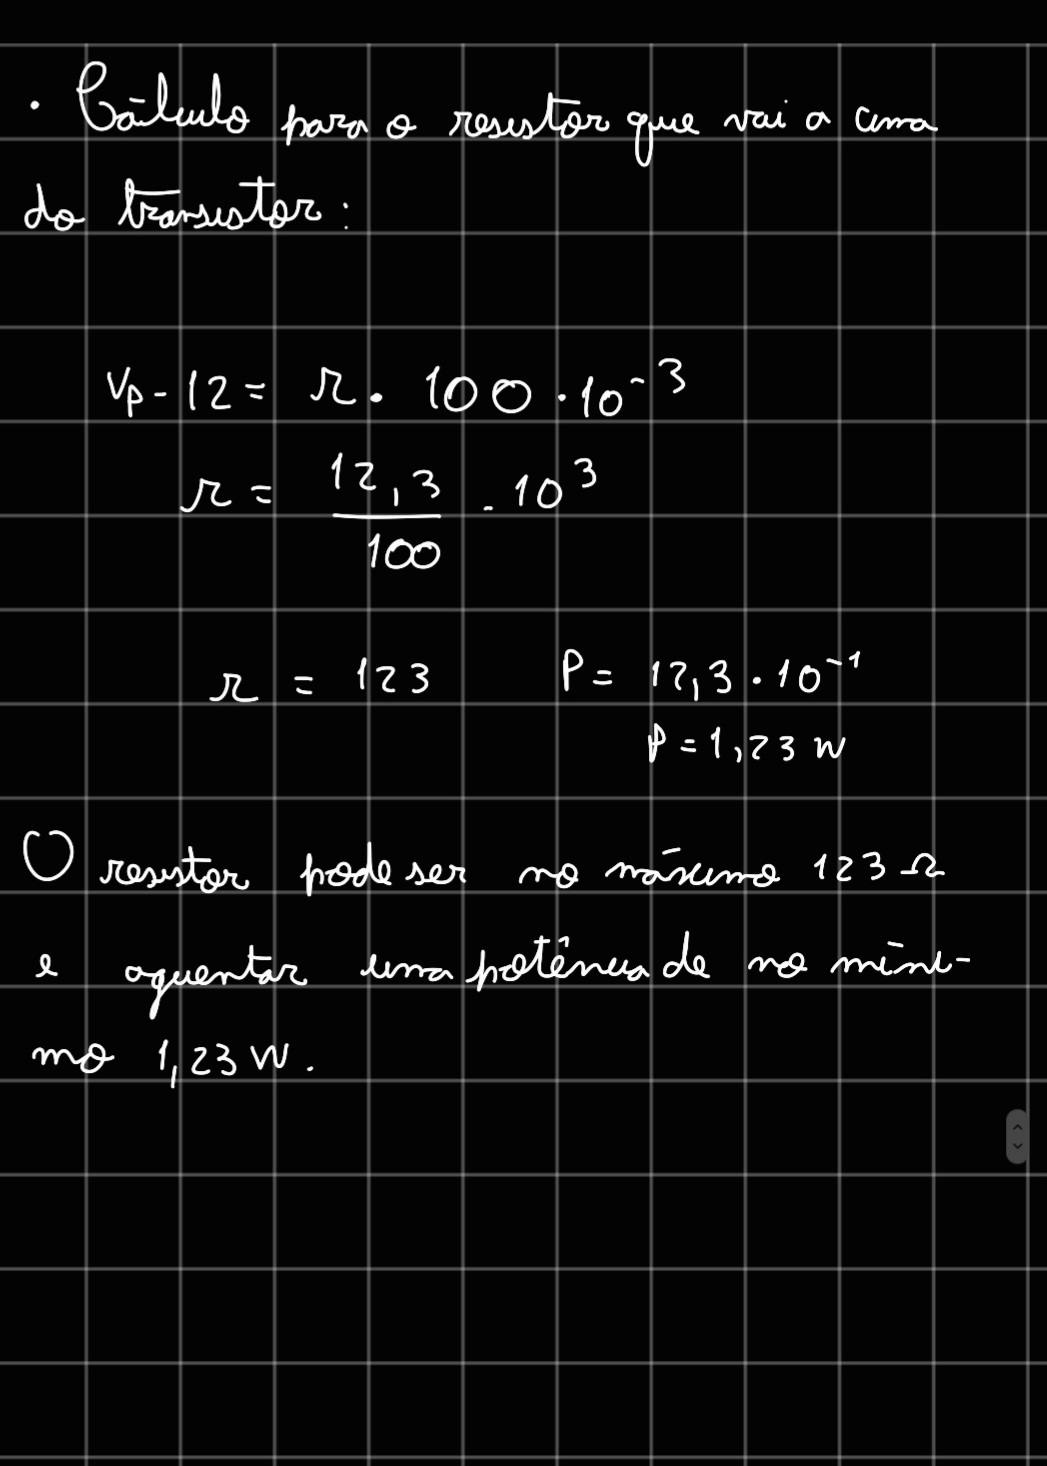 · Cálculo para o resistor que vai a cima
do transistor:
Vp - 12 = r. 100 · 10⁻³
r = 12,3 / 100 . 10³
r = 123 P = 12,3 · 10⁻¹
P = 1,23 W
O resistor pode ser no máximo 123 Ω
e aguentar uma potência de no míni-
mo 1,23 W.